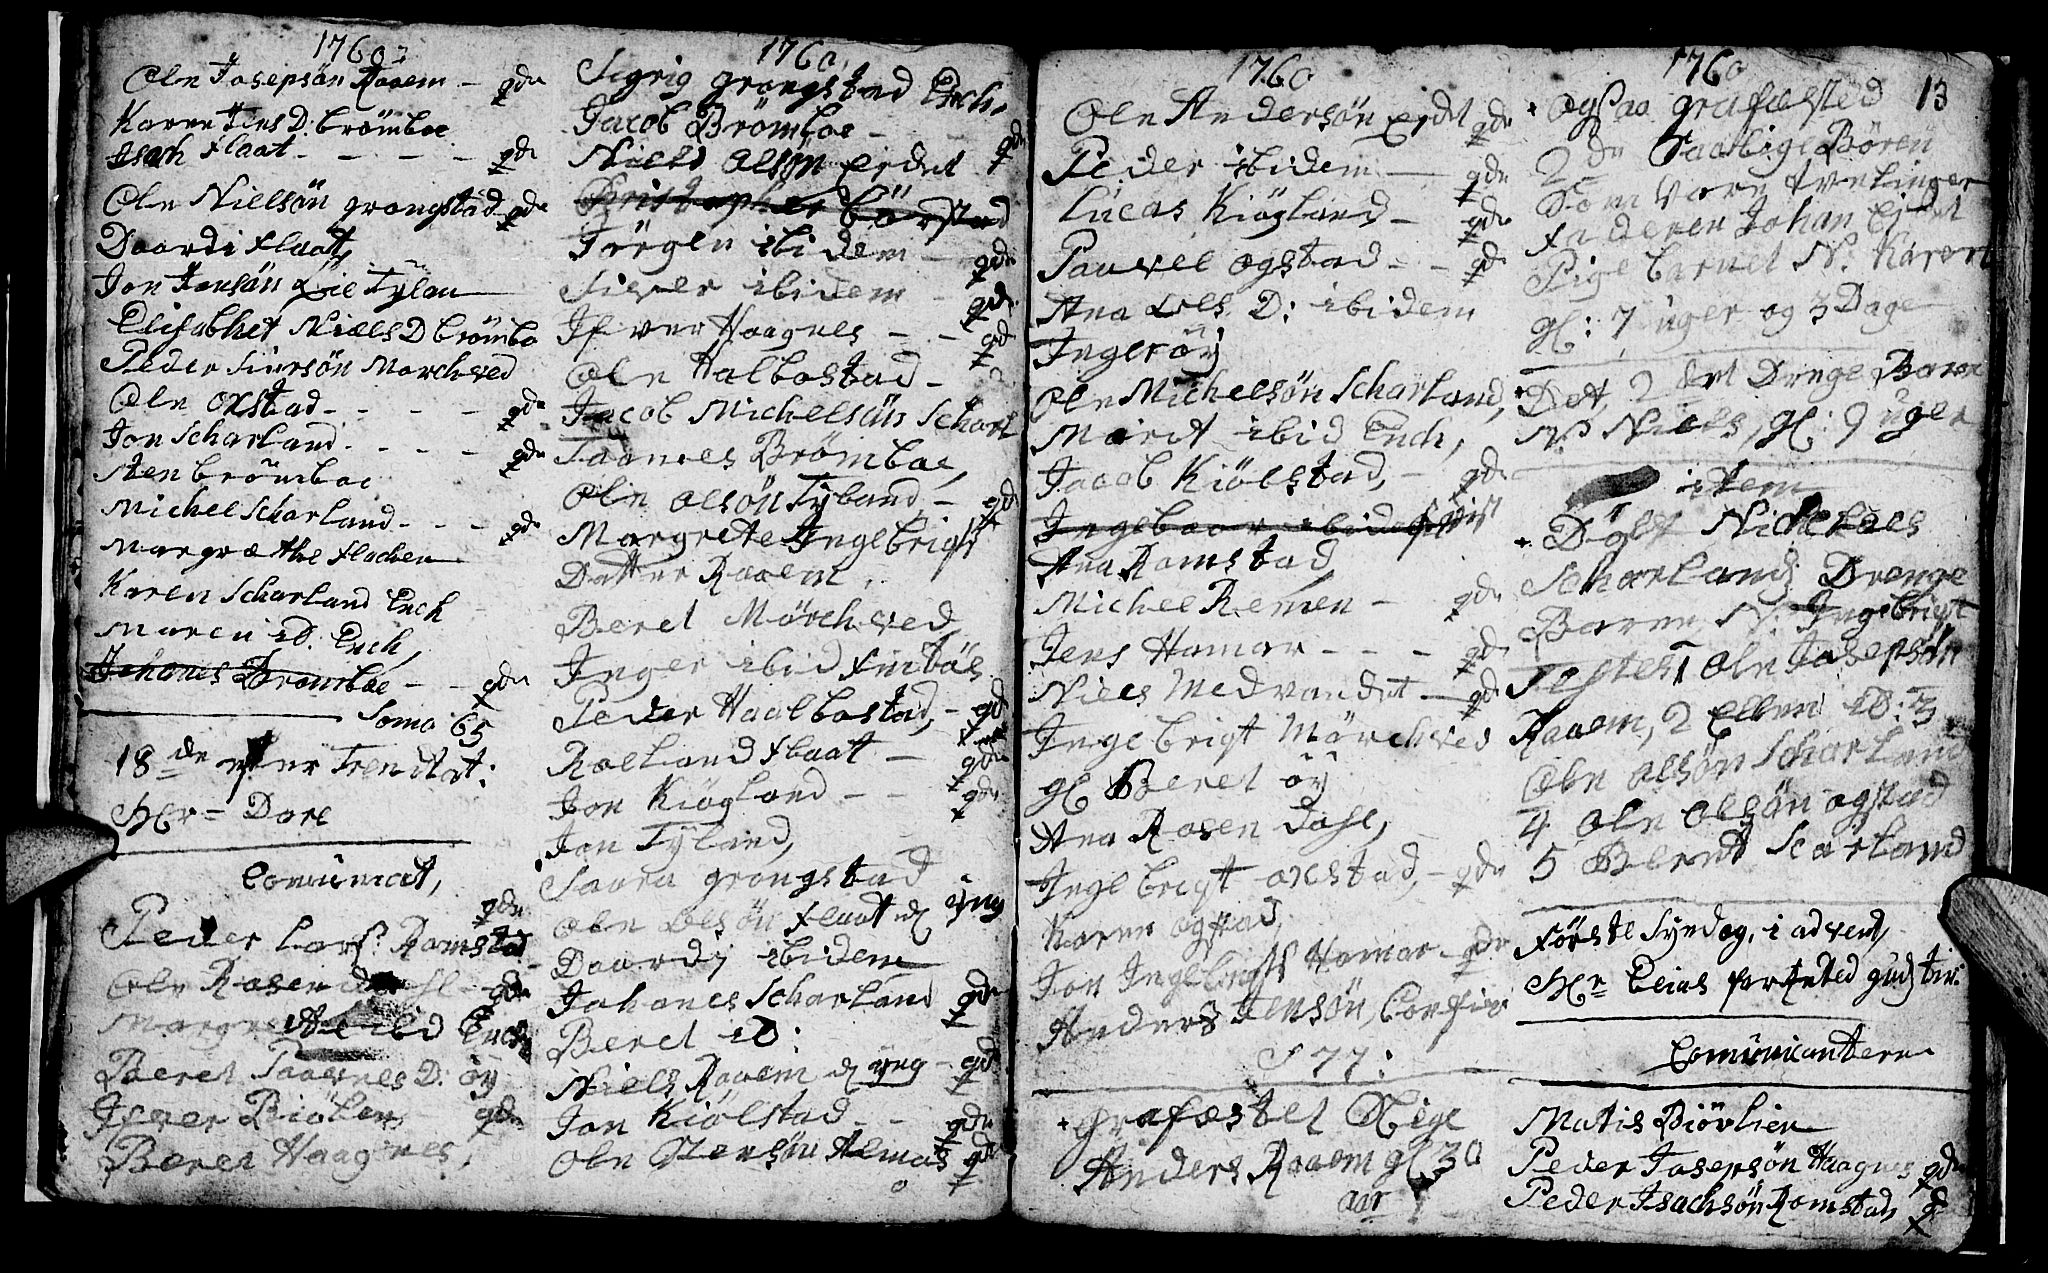 1760
Ole Josepsön Raaem - qdr
Karen Jens D. brömboe
Isach flaat - - - - qdr
Ole Nielsön grongstad qdr
Daardi flaat,
Jon Jonsön Tylan
Elisabhet Niels D brömbo
Peder Siursön Morchved
Ole oxstad - - - - qdr
Jon Scharland - - - - qdr
Sten brömboe
Michel Scharland - - - qdr
Margræthe flachen
Karen Scharland Ench
Maren iD. Ench,
Johanes Bromboe - - qdr
Soma 65
18 de efter Trenitat:
Hr = Dare
Comunicat,
qdr
Peder Lars: Ramstad
Ole Rosendahl qdr
Margrethe ibid Ench
Beret Taarnes D: öÿ
Ifver Biölen qdr
Beret Haagnes,
1760,
Sigrig grongstad Ench,
Jacob Brömboe - - - qdr
Niels olsön Eidet
Christopher börstad
Jörgen ibidem - qdr
Siver ibidem - qdr
If ver Haagnes - - qdr
Ole Halbostad -
Jacob Michelsön Scharl
Taarnes Brömboe,
Ole olsön Tyland, - qdr
Margrete Ingebrigt
Datter Raaem,
Beret Mörchved,
Inger ibid
Peder Haalbostad, - qdr
Roelland flaat - qdr
Jon Kiögland - - qdr
Jon Tyland,
Saara grongstad
Ole olsön flaat d yng
Daardi ibidem
Johanes Scharland qdr
Beret iD:
Niels Raaem d yng - qdr
Jon Kiölstad - - qdr
Ole Stensön Almaas qdr
1760
Ole Andersön Eydet qdr
Peder ibidem - qdr
Lucas Kiögland - qdr
Pauvel ogstad - - qdr
Ana Ols D: ibidem
Inger öÿ
Ole Michelsön Scharland,
Marit ibid Ench,
Jacob Kiölstad, - qdr
Ingeboor ibid
Ana Ramstad
Michel Remen - qdr
Jens Hamar - - - qdr
Niels Medvandet - qdr
Ingebrigt Mörchved
gl Beret öÿ
Ana Rosendahl,
Ingebrigt oxstad, - qdr
Karen ogstad,
Jon Ingebrigts Hamar - qdr
Anders Jensön,
S 77:
+ grafæstet Lige
Anders Raaem gl 30
aar
1760
13
+ ogsaa grafæsted
2de Saalige Bören
Som vare tvelinger
faderen Johan Ejdet
Pige barnet N: Karen
gl: 7 uger og 3 Dage
+ Det 2 det Drenge Baren
N: Niels, gl: 9 uger
item
+ Döbt Nichelaes
Scharlands Drenge
Baren N: Ingebrigt
Testes 1 Ole Josepsön
Raaem, 2 Ellen iD: 3
Ole olsön Scharland
4 Ole olsön ogstad
5 Berent Scarland
Förste Syndag, i advent,
Hr Elias forrented guds tin:
Comunicantern
Matis Biörlien
Peder Josepsön Haagnes qdr
Peder Isachsön Ramstad qdr